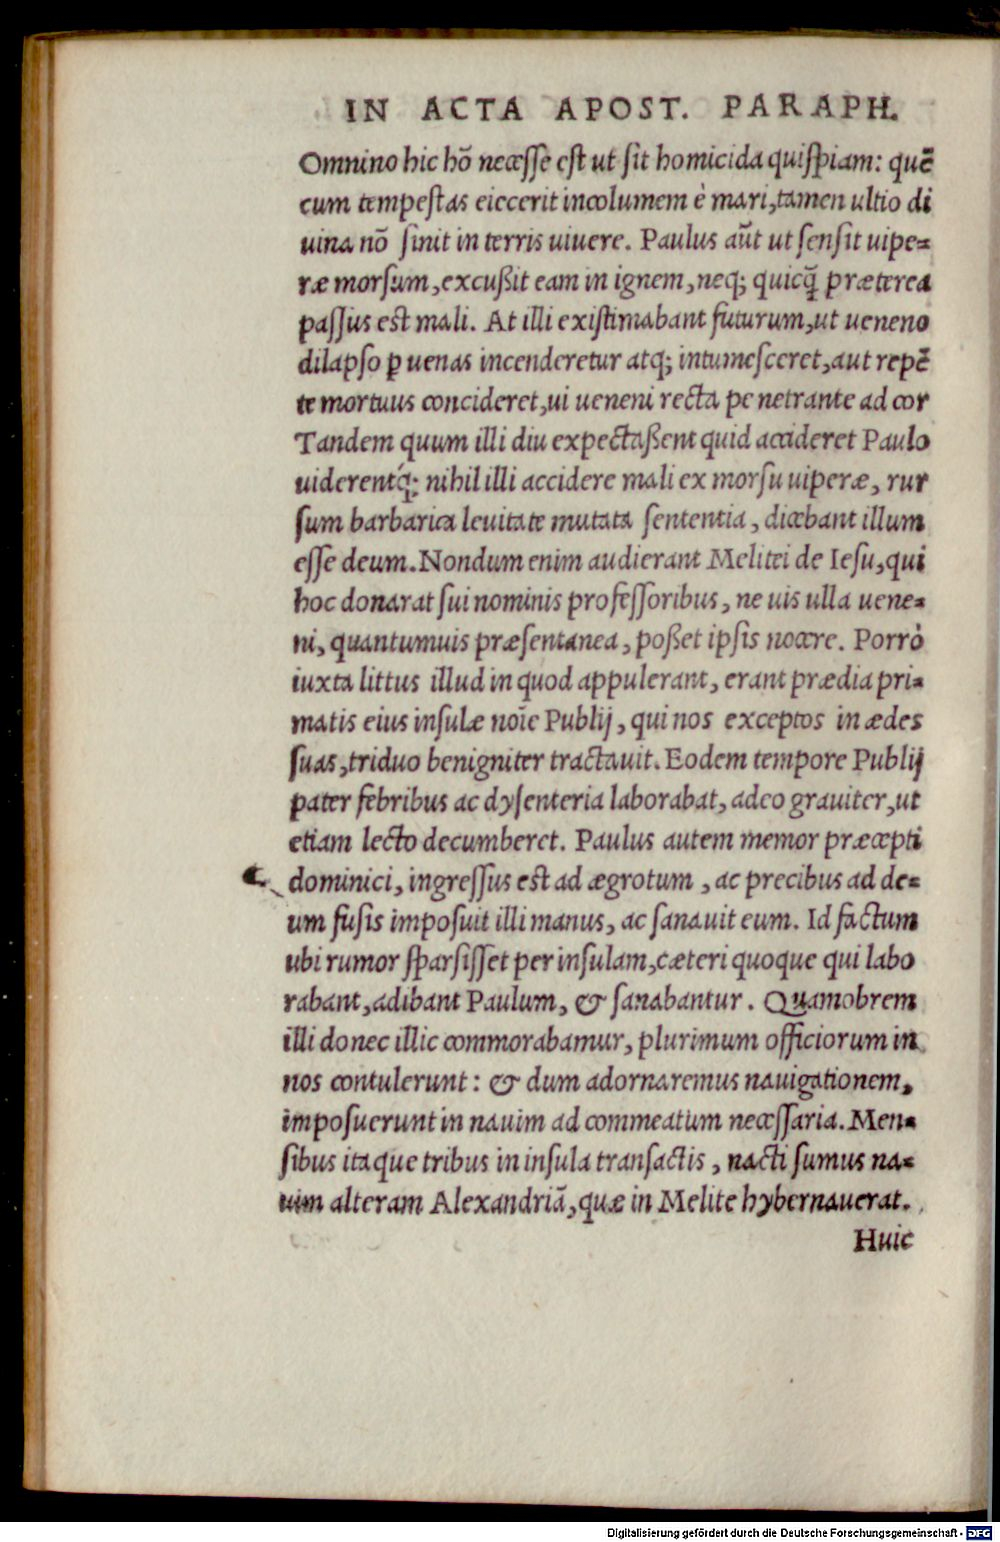 IN ACTA APOST. PARAPH.
Omnino hic hõ necesse est ut sit homicida quispiam: quẽ
cum tempestas eiecerit incolumem è mari, tamen ultio di
uina nõ sinit in terris uiuere. Paulus aũt ut sensit uipe-
ræ morsum, excußit eam in ignem, neq; quicq̃ præterea
passus est mali. At illi existimabant futurum, ut ueneno
dilapso ꝑ uenas incenderetur atq; intumesceret, aut repẽ
te mortuus concideret, ui ueneni recta penetrante ad cor
Tandem quum illi diu expectaßent quid accideret Paulo
uiderentq́; nihil illi accidere mali ex morsu uiperæ, rur
sum barbarica leuitate mutata sententia, dicebant illum
esse deum. Nondum enim audierant Melitei de Iesu, qui
hoc donarat sui nominis professoribus, ne uis ulla uene-
ni, quantumuis præsentanea, poßet ipsis nocere. Porrò
iuxta littus illud in quod appulerant, erant prædia pri-
matis eius insulæ noĩe Publij, qui nos exceptos in ædes
suas, triduo benigniter tractauit. Eodem tempore Publij
pater febribus ac dysenteria laborabat, adeo grauiter, ut
etiam lecto decumberet. Paulus autem memor præcepti
dominici, ingressus est ad ægrotum, ac precibus ad de-
um fusis imposuit illi manus, ac sanauit eum. Id factum
ubi rumor sparsisset per insulam, cæteri quoque qui labo
rabant, adibant Paulum, & sanabantur. Quamobrem
illi donec illic commorabamur, plurimum officiorum in
nos contulerunt: & dum adornaremus nauigationem,
imposuerunt in nauim ad commeatum necessaria. Men-
sibus itaque tribus in insula transactis, nacti sumus na-
uim alteram Alexandriã, quæ in Melite hybernauerat.
Huic
Digitalisierung gefördert durch die Deutsche Forschungsgemeinschaft - DFG